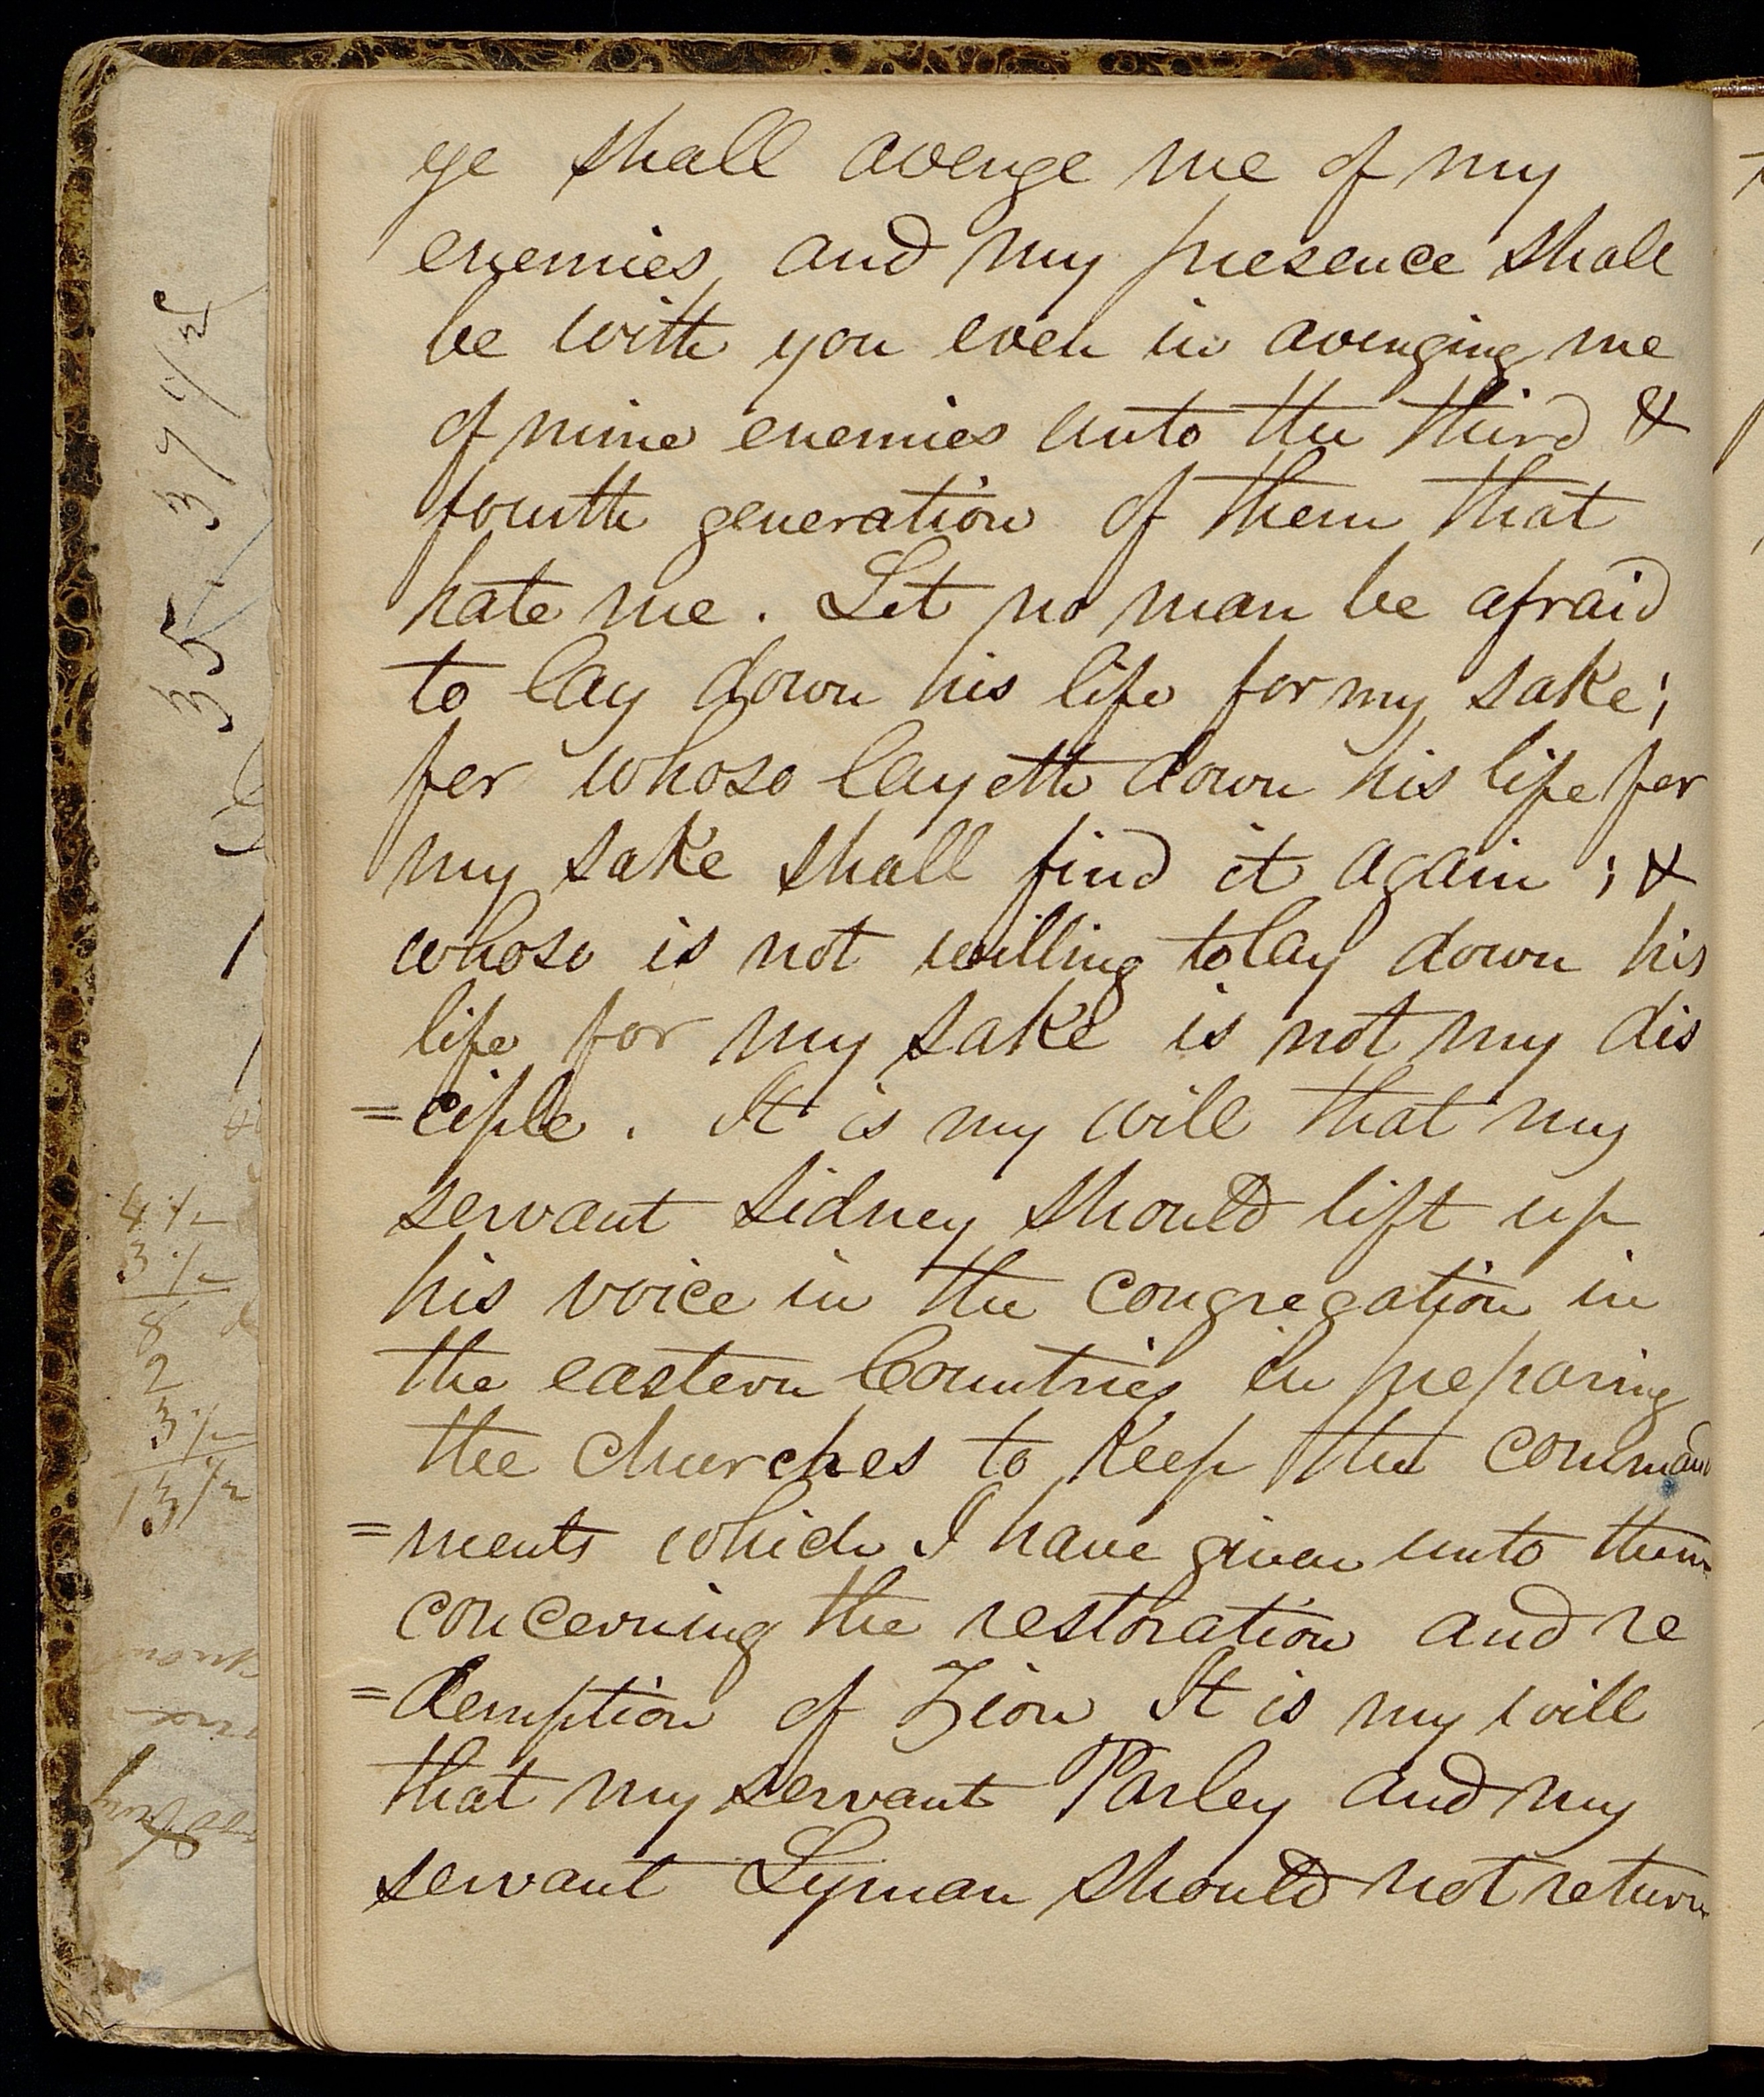 ye shall avenge me of my
enemies, and my presence shall
be with you even in avenging me
of mine enemies unto the third &
fourth generation of them that
hate me. Let no man be afraid
to lay down his life for my sake;
for whoso layeth down his life for
my sake shall find it again; &
whoso is not willing to lay down his
life for my sake is not my dis
=ciple. It is my will that my
servant Sidney should lift up
his voice in the congregation in
the eastern Countries in preparing
the churches to keep the command
=ments which I have given unto them
concerning the restoration and re
=demption of Zion It is my will
that my servant Parley and my
servant Lyman should not return
35
4 1/2
3 1/2
8
2
3 1/2
13 1/2